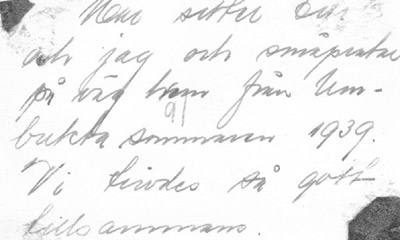 Här sitter
och jag och småpratar
på väg hem från Um-
bukta sommaren 1939.
Vi trivdes så gott
tillsammans.